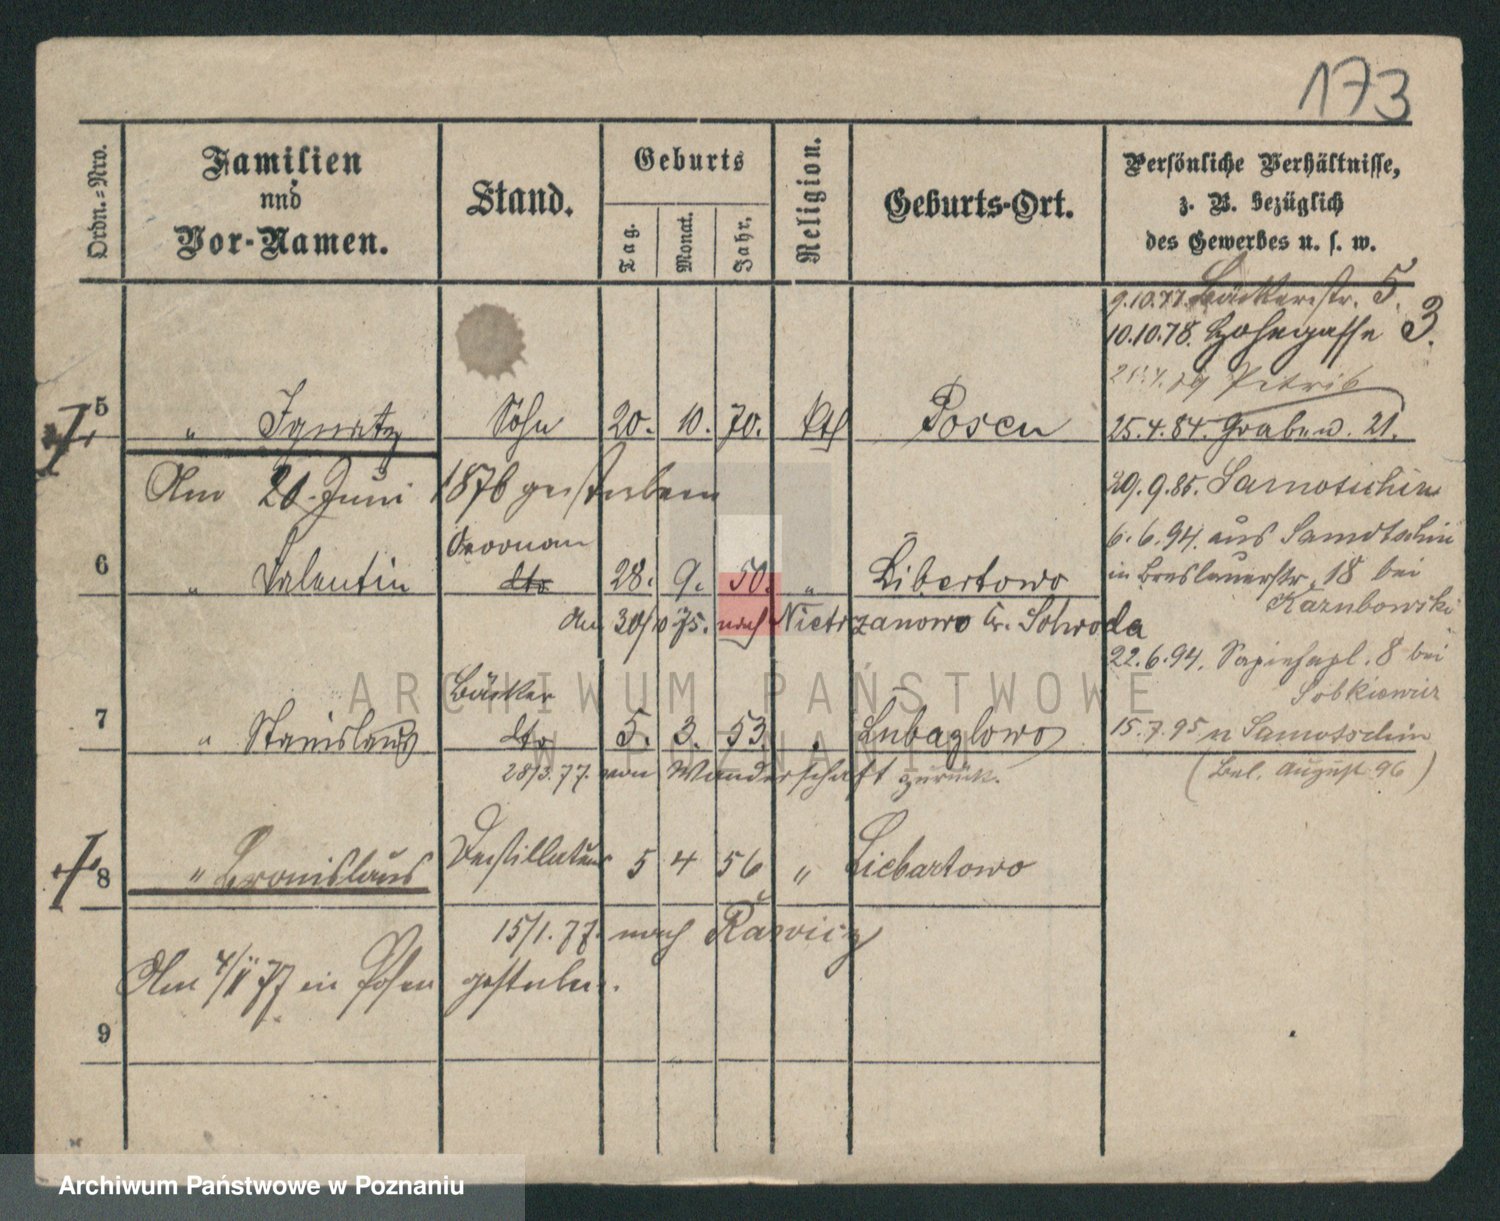 173
Ordn.-Nro.
Familien
und
Vor-Namen.
Stand.
Geburts
Tag.
Monat.
Jahr.
Religion.
Geburts-Ort.
Persönliche Verhältnisse,
z. B. bezüglich
des Gewerbes u. s. w.
9.10.77. Bäckerstr. 5.
10.10.78. Hohegasse 3.
5 " Ignatz Sohn 20. 10. 70. kth Posen
25.4.84. Graben. 21.
Am 21. Juni 1876 gestorben
29.9.85. Samotschin
6.6.94. aus Samotschin
6 " Valentin dto 28. 9. 50. " Libertowo
in Breslauerstr. 18 bei
Karubowski
am 30/10 75. nach Nietrzanowo Kr. Schroda
22.6.94. Sapiehapl. 8 bei
Sobkiewicz
Bäcker
7 " Stanislaus dto 5. 3. 53 " Lubaglowo
15.7.95 n Samotschin
28/3.77. von Wanderschaft zurück.
(Bel. August 96)
8 " Bronislaus Destillateur 5 4 56 " Liebartowo
15/1.77. nach Rawicz
Am 4/11 77 in Posen gestorben.
9
ARCHIWUM PAŃSTWOWE
W POZNANIU
Archiwum Państwowe w Poznaniu